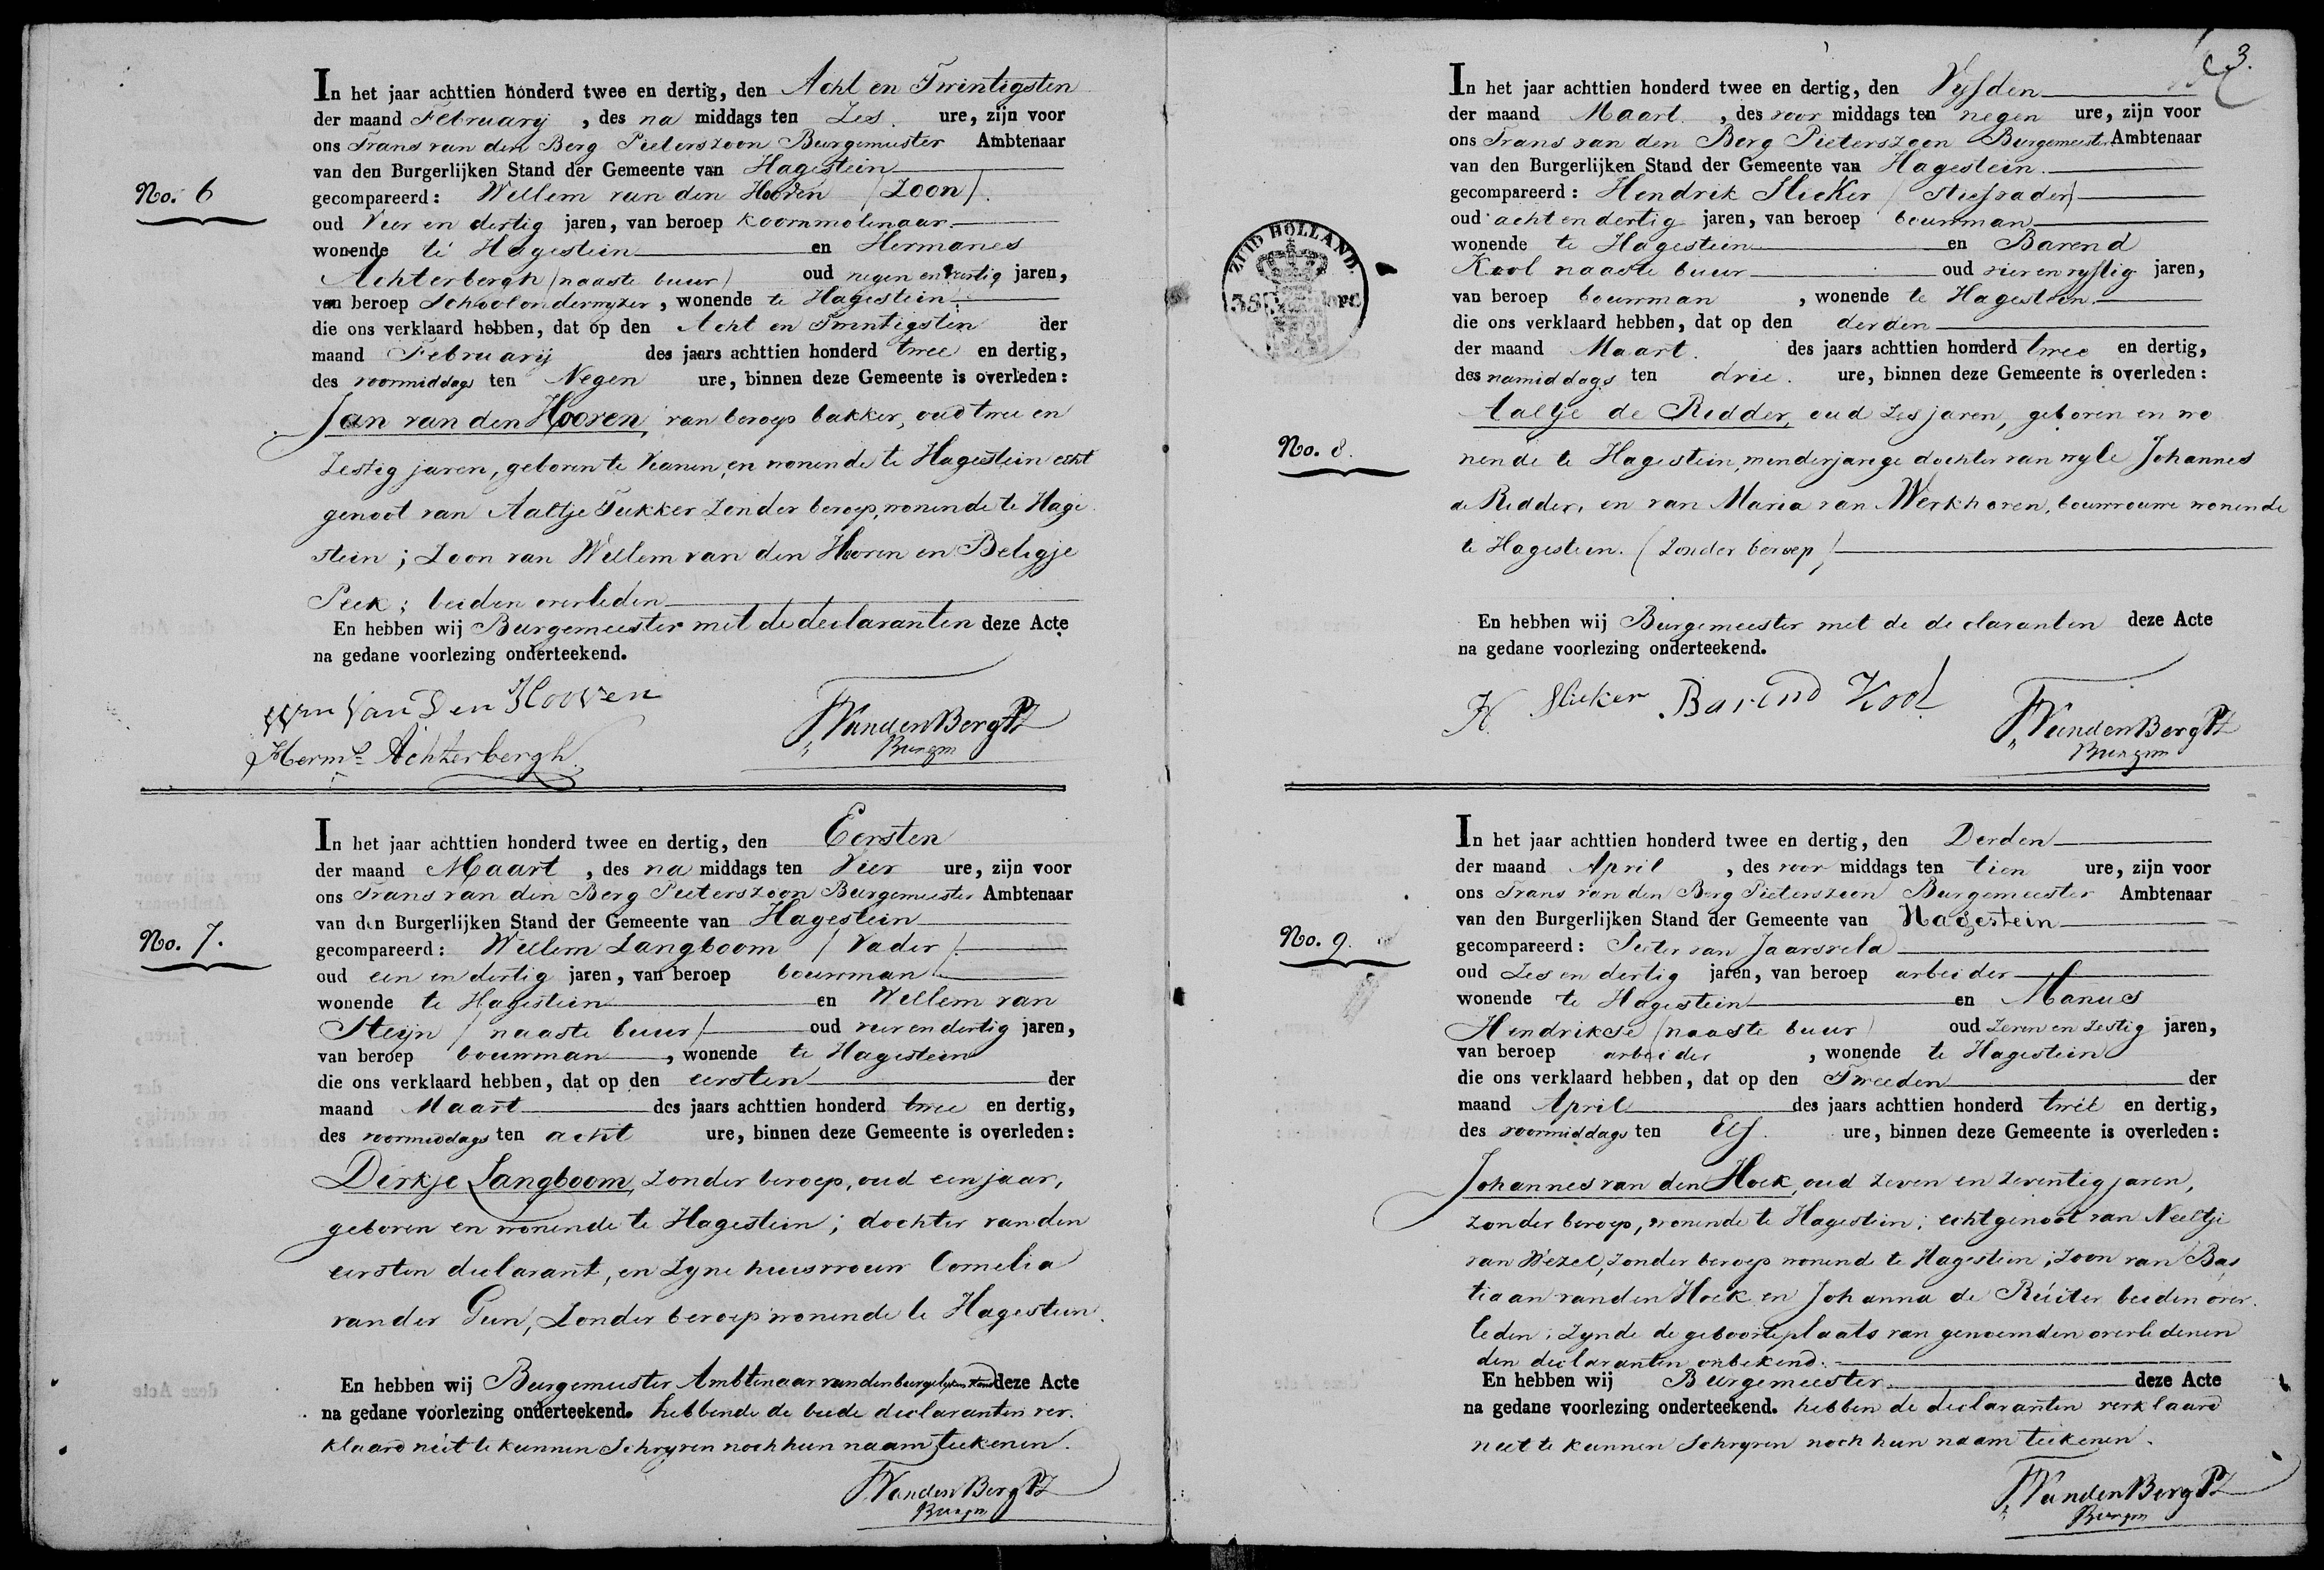 In het jaar achttien honderd twee en dertig, den Acht en Twintigsten
der maand February , des na middags ten Zes. ure, zijn voor
ons Frans van den Berg Pieterszoon Burgemeester Ambtenaar
van den Burgerlijken Stand der Gemeente van Hagestein
No. 6
gecompareerd: Willem van den Hooven (Zoon)
oud Vier en dertig jaren, van beroep Koornmolenaar
wonende te Hagestein en Hermanes
Achterbergh (naaste buur) oud negen en veertig jaren,
van beroep Schoolonderwyzer, wonende te Hagestein
die ons verklaard hebben, dat op den Acht en Twintigsten der
maand February des jaars achttien honderd twee en dertig,
des voormiddags ten Negen ure, binnen deze Gemeente is overleden:
Jan van den Hooven, van beroep bakker, oud twee en
Zestig jaren, geboren te Vianen, en wonende te Hagestein echt
genoot van Aaltje Tukker Zonder beroep, wonende te Hage
stein; Zoon van Willem van den Hooven en Beligje
Peek; beiden overleden
En hebben wij Burgemeester met de declaranten deze Acte
na gedane voorlezing onderteekend.
Wm Van Den Hooven
FVandenBerg PZ
Burgm
Herms Achterbergh
In het jaar achttien honderd twee en dertig, den Eersten
der maand Maart , des na middags ten Vier ure, zijn voor
ons Frans van den Berg Pieterszoon Burgemeester Ambtenaar
van den Burgerlijken Stand der Gemeente van Hagestein
No. 7.
gecompareerd: Willem Langboom (Vader)
oud een en dertig jaren, van beroep bouwman
wonende te Hagestein en Willem van
Steyn (naaste buur) oud vier en dertig jaren,
van beroep bouwman, wonende te Hagestein
die ons verklaard hebben, dat op den eersten der
maand Maart des jaars achttien honderd twee en dertig,
des voormiddags ten acht ure, binnen deze Gemeente is overleden:
Dirkje Langboom, Zonder beroep, oud een jaar,
geboren en wonende te Hagestein; dochter van den
eersten declarant, en Zyne huisvrouw Cornelia
van der Gun, Zonder beroep wonende te Hagestein.
En hebben wij Burgemeester Ambtenaar van den burgelyken stand deze Acte
na gedane voorlezing onderteekend. hebbende de beide declaranten ver
klaard niet te kunnen Schryven noch hun naam teekenen.
FVandenBerg PZ
Burgm
3.
In het jaar achttien honderd twee en dertig, den Vyfden
der maand Maart , des voor middags ten negen ure, zijn voor
ons Frans van den Berg Pieterszoon Burgemeester Ambtenaar
van den Burgerlijken Stand der Gemeente van Hagestein.
gecompareerd: Hendrik Slieker (Stiefvader)
oud acht en dertig jaren, van beroep bouwman
wonende te Hagestein en Barend
Kool naaste buur oud vier en vyftig jaren,
van beroep bouwman , wonende te Hagestein.
die ons verklaard hebben, dat op den derden
der maand Maart. des jaars achttien honderd twee en dertig,
des namiddags ten drie. ure, binnen deze Gemeente is overleden:
ZUID HOLLAND.
Aaltje de Ridder, oud Zes jaren, geboren en wo
No. 8.
nende te Hagestein, minderjarige dochter van wyle Johannes
de Ridder, en van Maria van Werkhoven, bouwvrouwe wonende
te Hagestein. (Zonder beroep)
En hebben wij Burgemeester met de declaranten deze Acte
na gedane voorlezing onderteekend.
H. Slieker Barend Kool
FVandenBerg PZ
Burgm
In het jaar achttien honderd twee en dertig, den Derden
der maand April , des voor middags ten tien ure, zijn voor
ons Frans van den Berg Pieterszoon Burgemeester Ambtenaar
van den Burgerlijken Stand der Gemeente van Hagestein
No. 9.
gecompareerd: Pieter van Jaarsveld
oud Zes en dertig jaren, van beroep arbeider
wonende te Hagestein en Manus
Hendrikse (naaste buur) oud Zeven en Zestig jaren,
van beroep arbeider , wonende te Hagestein
die ons verklaard hebben, dat op den Tweeden der
maand April des jaars achttien honderd twee en dertig,
des voormiddags ten Elf. ure, binnen deze Gemeente is overleden:
Johannes van den Hoek, oud Zeven en Zeventig jaren,
Zonder beroep, wonende te Hagestein; echtgenoot van Neeltje
van Wezel, Zonder beroep wonende te Hagestein; Zoon van Bas
tiaan van den Hoek en Johanna de Ruiter beiden over
leden; Zynde de geboorteplaats van genoemden overledenen
den declaranten onbekend.
En hebben wij Burgemeester deze Acte
na gedane voorlezing onderteekend. hebben de declaranten verklaard
niet te kunnen Schryven noch hun naam teekenen.
FVandenBerg PZ
Burgm